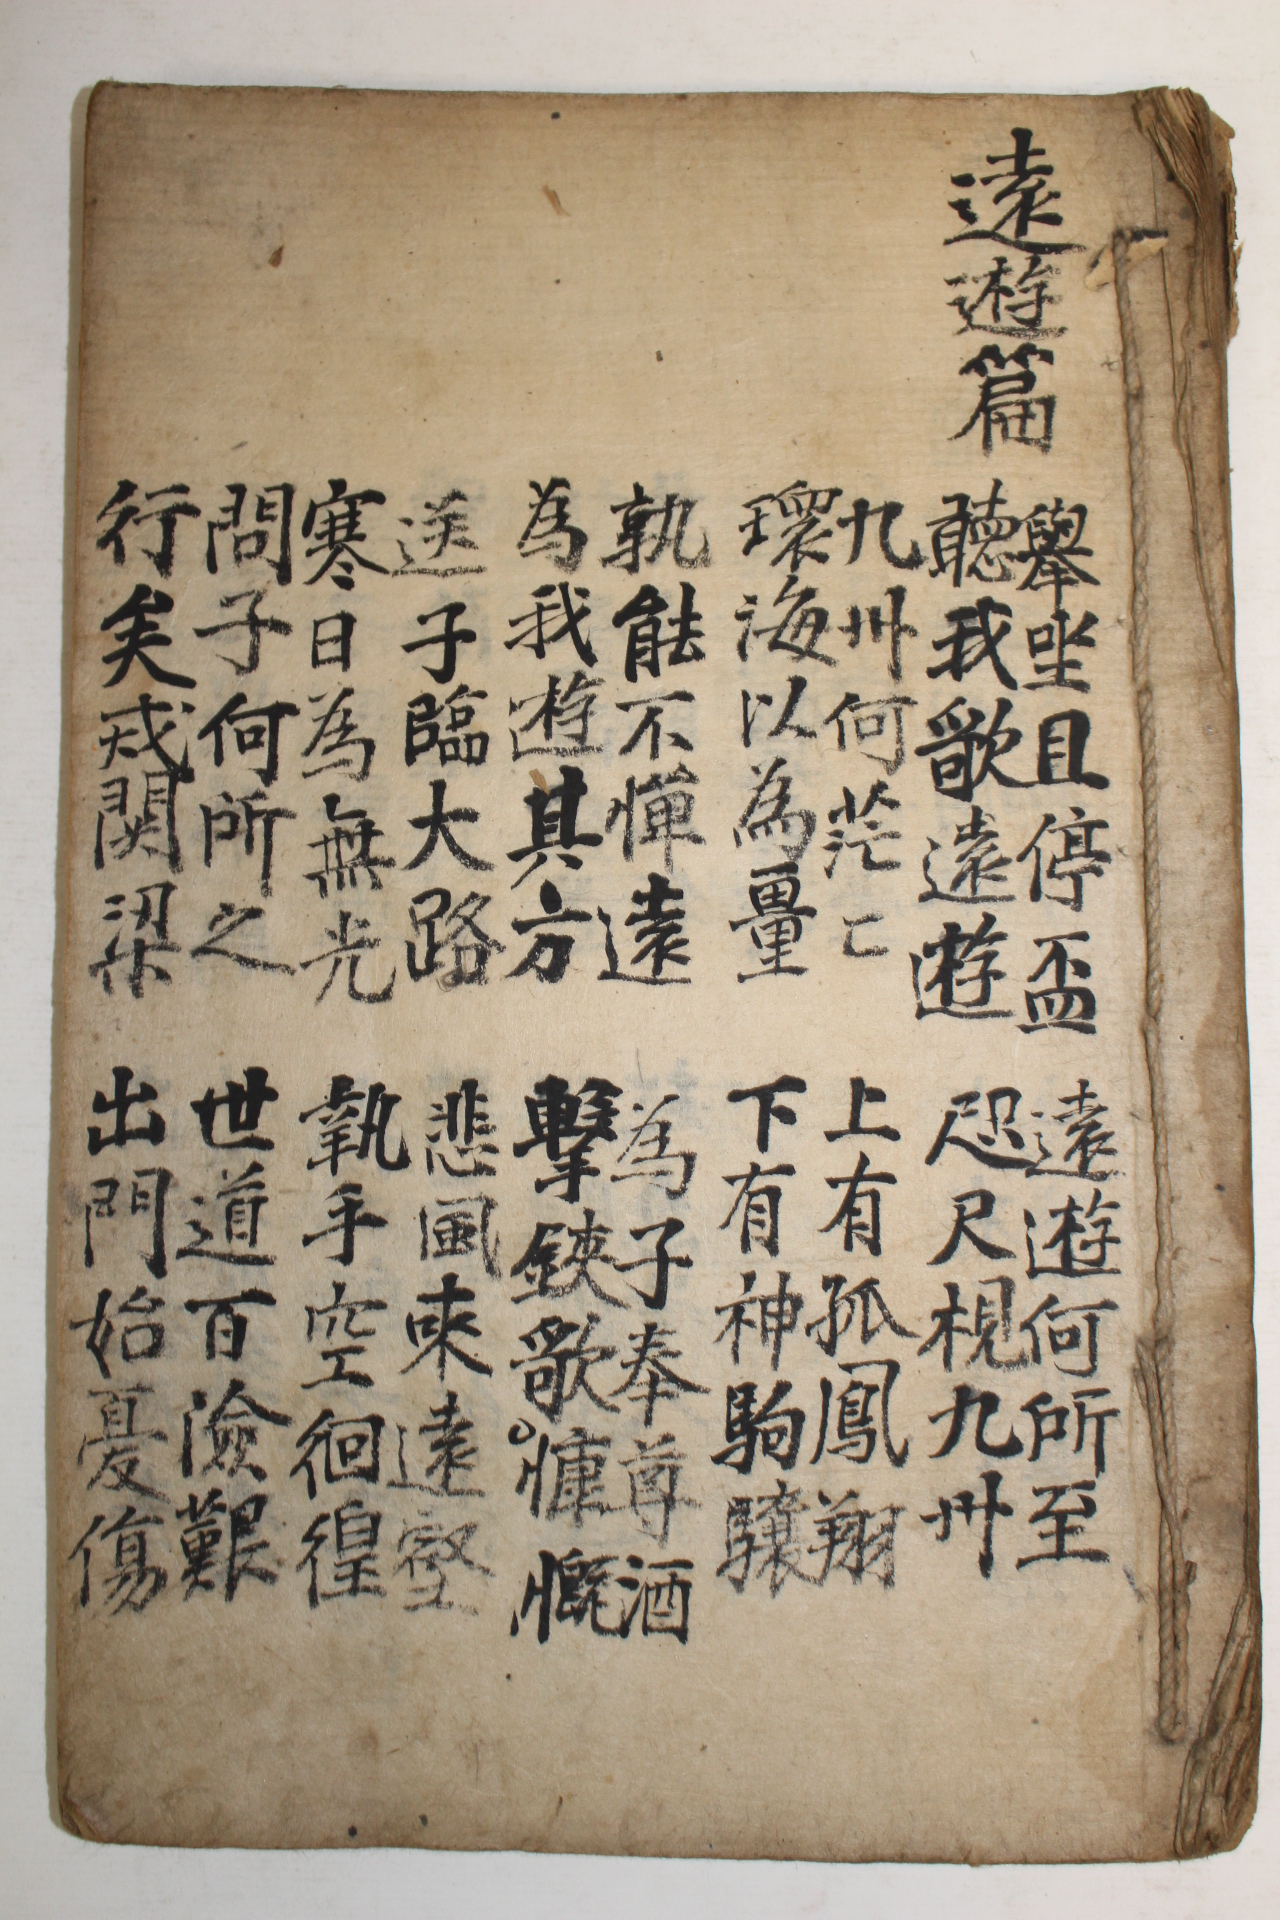 遠遊篇
舉坐且停盃
聽我歌遠遊
遠遊何所至
咫尺視九州
九州何茫々
環海以為量
上有孤鳳翔
下有神駒驤
孰能不憚遠
為我遊其方
為子奉尊酒
擊鋏歌慷慨
送子臨大路
寒日為無光
悲風來遠壑
執手空徊徨
問子何所之
行矣戒関梁
世道百險艱
出門始憂傷